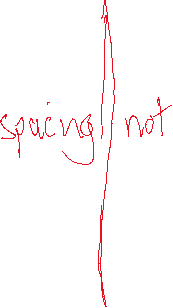 spacing not